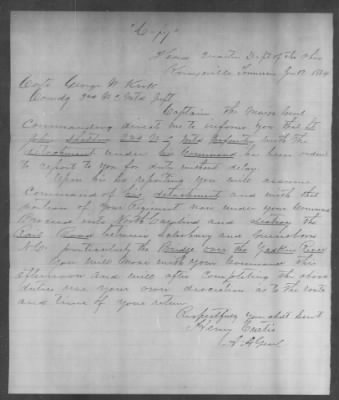 "Copy"
Head Quarters Dept of the Ohio
Knoxville Tennessee Jan 12 1864
Capt George W Kirk
Comdg 2nd N C Vols Inft
Captain The Major Genl
Commanding directs me to inform you that Lt
John 2nd N C Vols Infantry with the
detachment under his Command has been ordered
to report to you for duty without delay.
Upon his so reporting you will assume
Command of his detachment and with that
portion of your Regiment now under your Command
Proceed into North Carolina and destroy the
Rail Road between Salisbury and Greensboro
N.C. particularly the Bridge over the Yadkin River
You will move with your Command this
afternoon and will after Completing the above
duties use your own discretion as to the route
and time of your return
Respectfully your obdt Servt
Henry Curtis
A A Genl